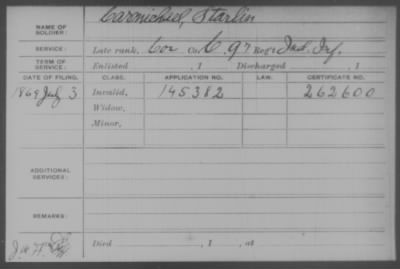 NAME OF SOLDIER: Carmichael, Starlin
SERVICE: Late rank, Cor Co. C, 97 Reg't Ind. Inf.
TERM OF SERVICE: Enlisted , 1 Discharged , 1
DATE OF FILING. CLASS. APPLICATION NO. LAW. CERTIFICATE NO.
1869 July 3 Invalid, 145382 262600
Widow,
Minor,
ADDITIONAL SERVICES:
REMARKS:
Died , 1 , at